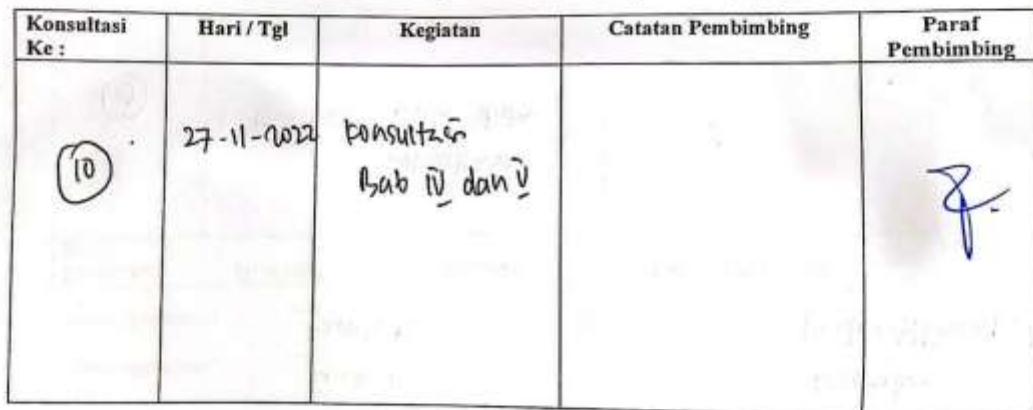 Konsultasi Ke :
Hari / Tgl
Kegiatan
Catatan Pembimbing
Paraf Pembimbing
10
27-11-2022
Konsultasi
Bab IV dan V